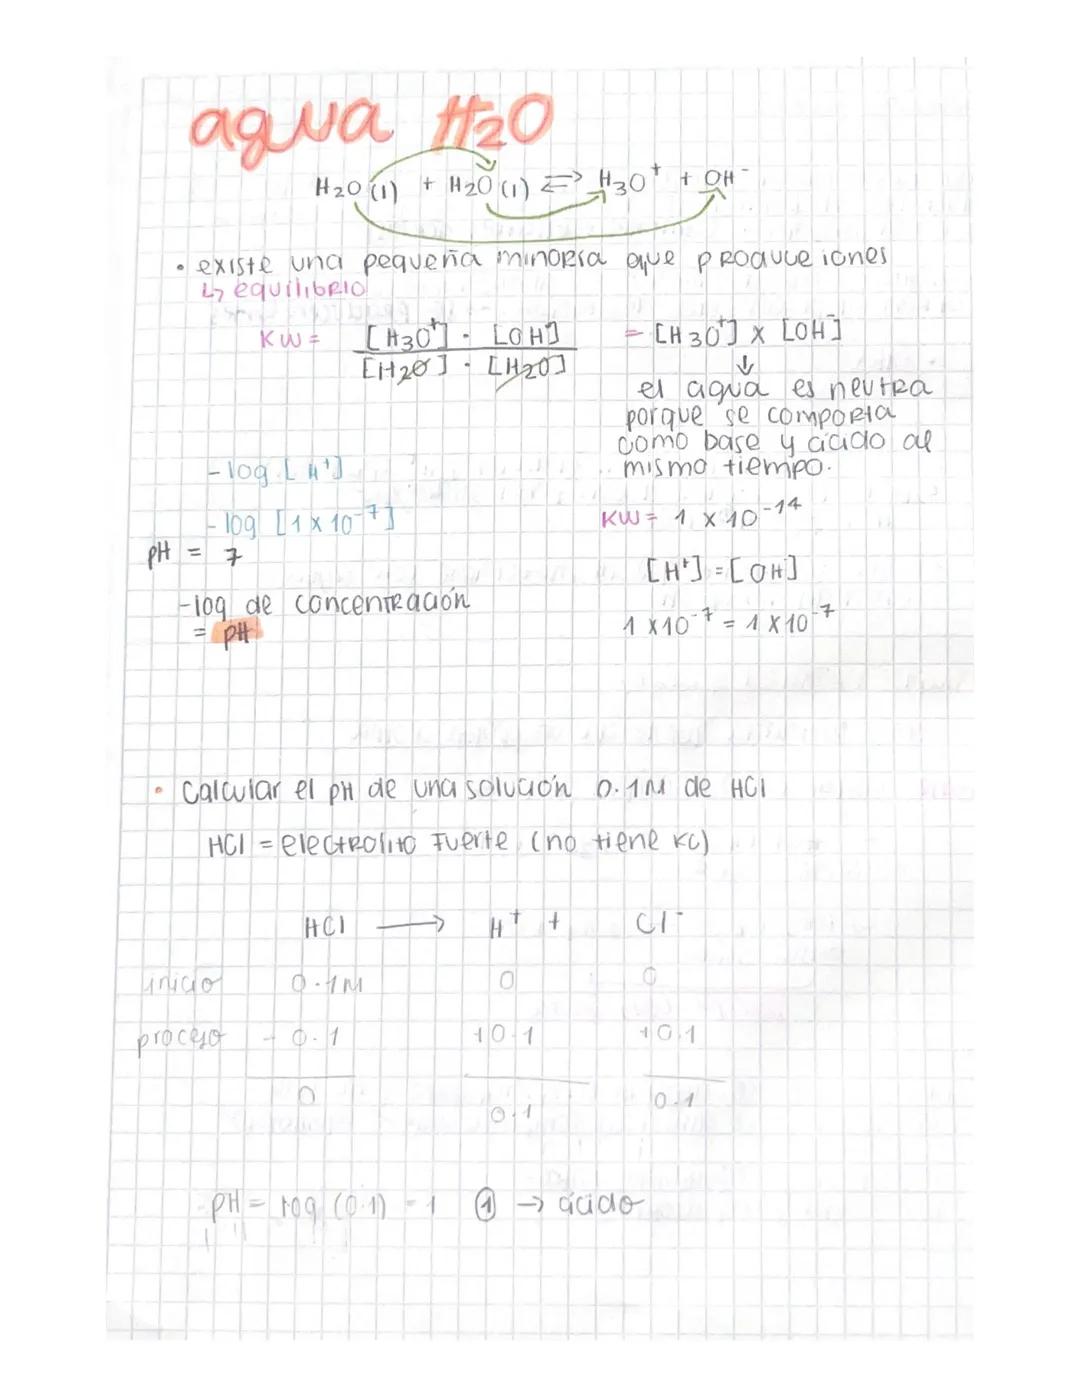 agua H2O
H2O (l) + H2O (l) ⇌ H3O+ + OH-
• existe una pequeña minoría que produce iones
↳ equilibrio
KW = [H3O+] · [OH-] / [H2O] · [H2O] = [H3O+] x [OH-]
↓
el agua es neutra
porque se comporta
como base y ácido al
mismo tiempo.
-log [H+]
-log [1 x 10-7]
pH = 7
-log de concentración
= pH
KW = 1 x 10-14
[H+] = [OH]
1 x 10-7 = 1 x 10-7
• Calcular el pH de una solución 0.1M de HCl
HCl = electrolito Fuerte (no tiene KC)
HCl → H+ + Cl-
inicio 0.1M 0 0
proceso - 0.1 +0.1 +0.1
0 0.1 0.1
pH = log (0.1) = 1 ① → ácido